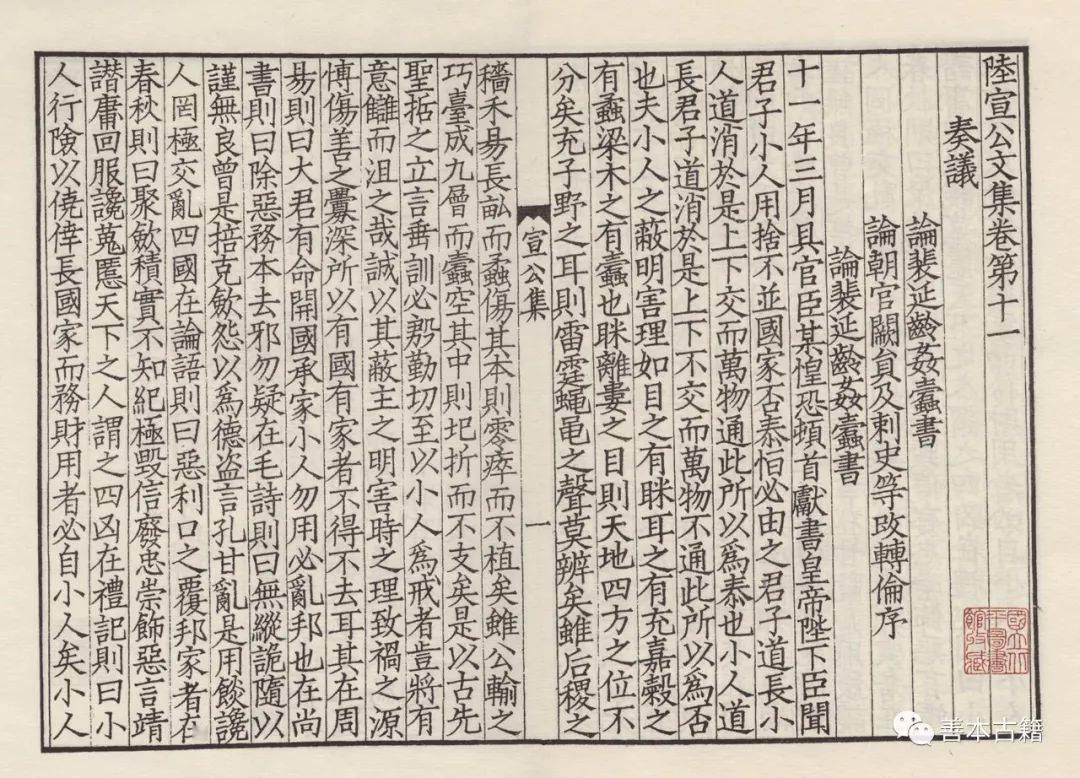 陸宣公文集卷第十一
奏議
論裴延齡姦蠹書
論朝官闕員及刺史等改轉倫序
論裴延齡姦蠹書
十一年三月具官臣某惶恐頓首獻書皇帝陛下臣聞
君子小人用捨不並國家否泰恒必由之君子道長小
人道消於是上下交而萬物通此所以為泰也小人道
長君子道消於是上下不交而萬物不通此所以為否
也夫小人之蔽明害理如目之有眯耳之有充嘉穀之
有蟊梁木之有蠹也眯離婁之目則天地四方之位不
分矣充子野之耳則雷霆蝇黽之聲莫辨矣雖后稷之
宣公集
一
穡禾易長畝而蟊傷其本則零瘁而不植矣雖公輸之
巧臺成九層而蠹空其中則圮折而不支矣是以古先
聖哲之立言垂訓必殷勤切至以小人為戒者豈將有
意讎而沮之哉誠以其蔽主之明害時之理致禍之源
博傷善之釁深所以有國有家者不得不去耳其在周
易則曰大君有命開國承家小人勿用必亂邦也在尚
書則曰除惡務本去邪勿疑在毛詩則曰無縱詭隨以
謹無良曾是掊克斂怨以為德盗言孔甘亂是用餤讒
人罔極交亂四國在論語則曰惡利口之覆邦家者在
春秋則曰聚斂積實不知紀極毀信廢忠崇飾惡言靖
譖庸回服讒蒐慝天下之人謂之四凶在禮記則曰小
人行險以僥倖長國家而務財用者必自小人矣小人
國立北
平圖書
館收藏
善本古籍